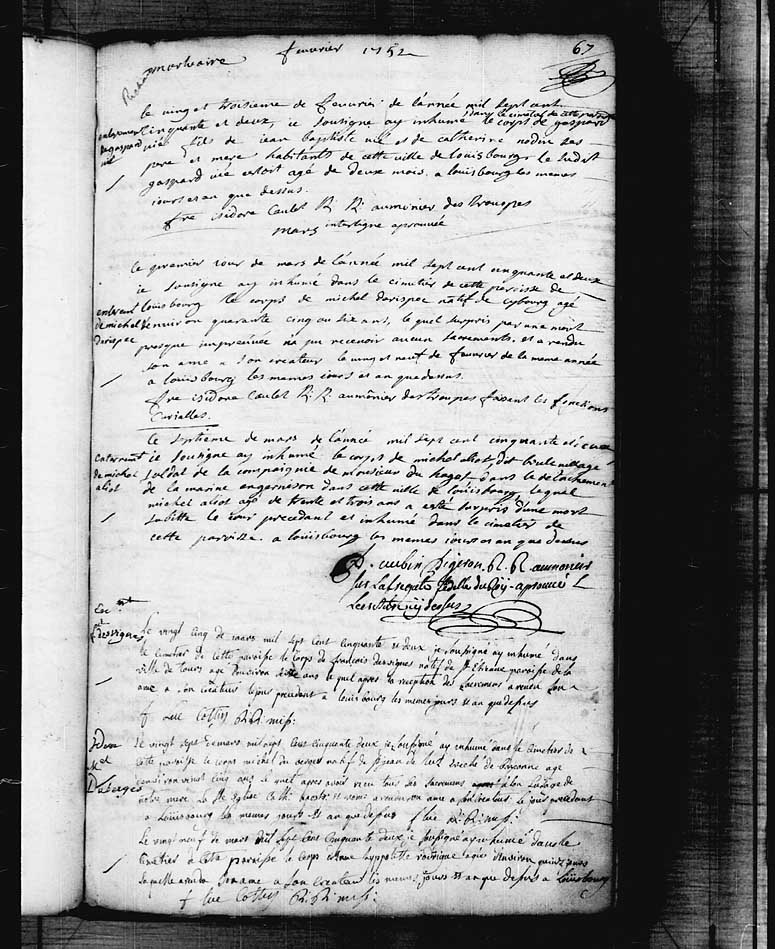 mortuaire fevurier 1752 67
le vingt et troisieme de fevurier de l'année mil sept cent
enterrement cinquante et deux, ie sousigne ay inhumé dans le cimetier de cette paroisse le corps de gaspard
de gaspard vié fils de iean baptiste vié et de catherine nodin ses
pere et mere habitants de cette ville de louisbourg le sudit
gaspard vié estoit agé de deux mois. a louisbourg les memes
iours et an que dessus.
fre isidore Caulet R. R. aumonier des troupes
mars interligne aprouvée
le premier iour de mars de l'année mil sept cent cinquante et deux
ie sousigne ay inhumé dans le cimetier de cette paroisse de
enterrement louisbourg le corps de michel darispec natif de agé
de michel denviron quarante cinq ou six ans, le quel surpris par une mort
darispec presque impreveue na pu recevoir aucun sacrements. et a rendu
son ame a son createur le vingt et neuf de fevurier de la meme année
a louisbourg les memes iours et an que dessus.
fre isidore Caulet R. R. aumônier des troupes faisant les fonctions
Curialles.
le septieme de mars de l'année mil sept cent cinquante et deux
enterrement ie sousigne ay inhumé le corps de michel aliot dit brule village
de michel soldat de la compaignie de monsieur du haget dans le detachement
aliot de la marine engarnison dans cette ville de louisbourg lequel
michel aliot agé de trente et trois ans a esté surpris d'une mort
subitte le iour precedant et inhumé dans le cimetier de
cette paroisse. a louisbourg les memes iours et an que dessus
f. aubin digeron R. R aumonier
sur la fregate du Roy aprouvé
cy dessus
Le vingt cinq de mars mil sept cent cinquante et deux je sousigné ay inhumé dans
desvignes le cimetier de cette paroisse le corps de francois desvignes natif de St Etienne paroisse de la
ville de tours agé denviron ans le quel apres la reception des sacremens a rendu son
ame a son créateur le jour precedent a louisbourg les memes jours et an que dessus
f. luc R. R. miss:
Le vingt sept de mars mil sept cent cinquante deux je sousigné ay inhumé dans le cimetier de
cette paroisse le corps michel du verger natif de St jean de eveché de agé
denviron vingt cinq ans le quel apres avoir receu tous les sacremens a lusage de
notre mere la Ste Eglise Cath: a rendu son ame a son createur le jour precedent
a Louisbourg les memes jours et an que dessus f luc R. R. miss:
Le vingt neuf de mars mil sept cent cinquante deux je sousigné ay inhumé dans le
cimetier de cette paroisse le corps hyppolitte agée denviron quinze jours
laquelle a rendu son ame a son createur les memes jours et an que dessus a Louisbourg
f luc R. R. miss: